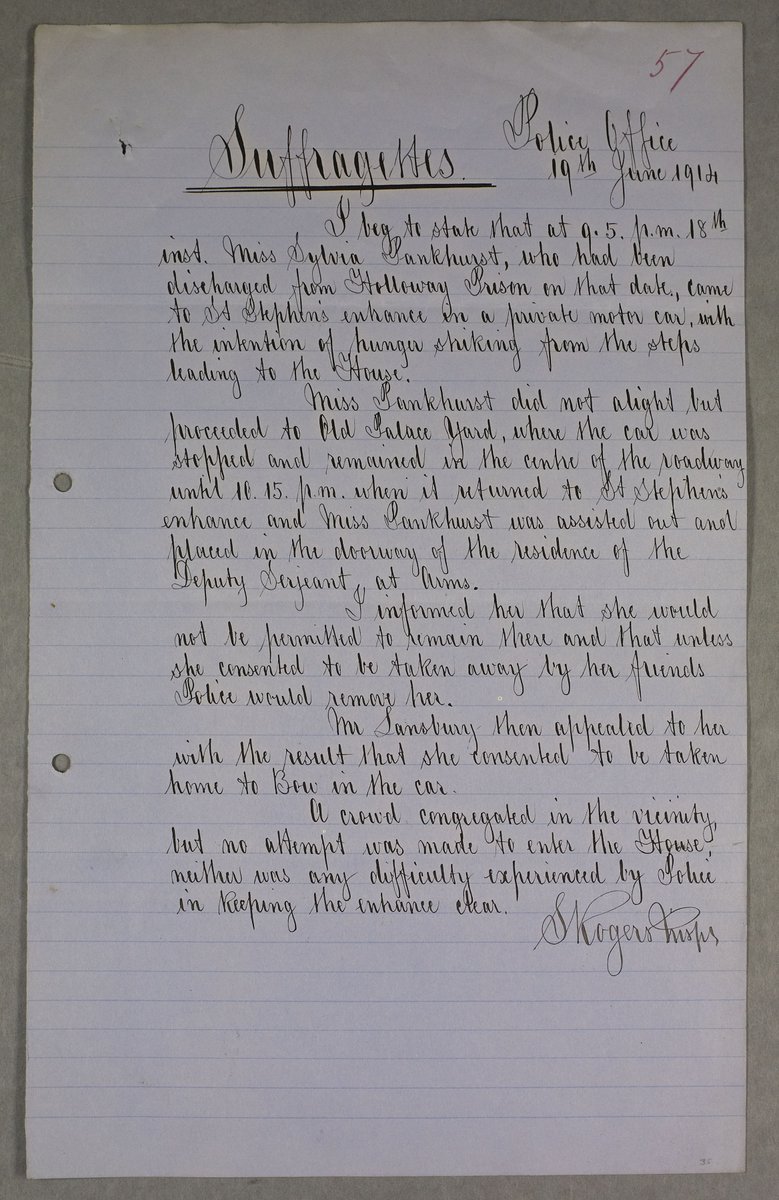 57
Police Office
Suffragettes.
19th June 1914
I beg to state that at 9.5. p.m. 18th
inst. Miss Sylvia Pankhurst, who had been
discharged from Holloway Prison on that date, came
to St Stephen's entrance in a private motor car, with
the intention of hunger striking from the steps
leading to the House.
Miss Pankhurst did not alight but
proceeded to Old Palace Yard, where the car was
stopped and remained in the centre of the roadway
until 10.15. p.m. when it returned to St Stephen's
entrance and Miss Pankhurst was assisted out and
placed in the doorway of the residence of the
Deputy Serjeant at Arms.
I informed her that she would
not be permitted to remain there and that unless
she consented to be taken away by her friends
Police would remove her.
Mr Lansbury then appealed to her
with the result that she consented to be taken
home to Bow in the car.
A crowd congregated in the vicinity,
but no attempt was made to enter the House,
neither was any difficulty experienced by Police
in keeping the entrance clear.
S Rogers
35